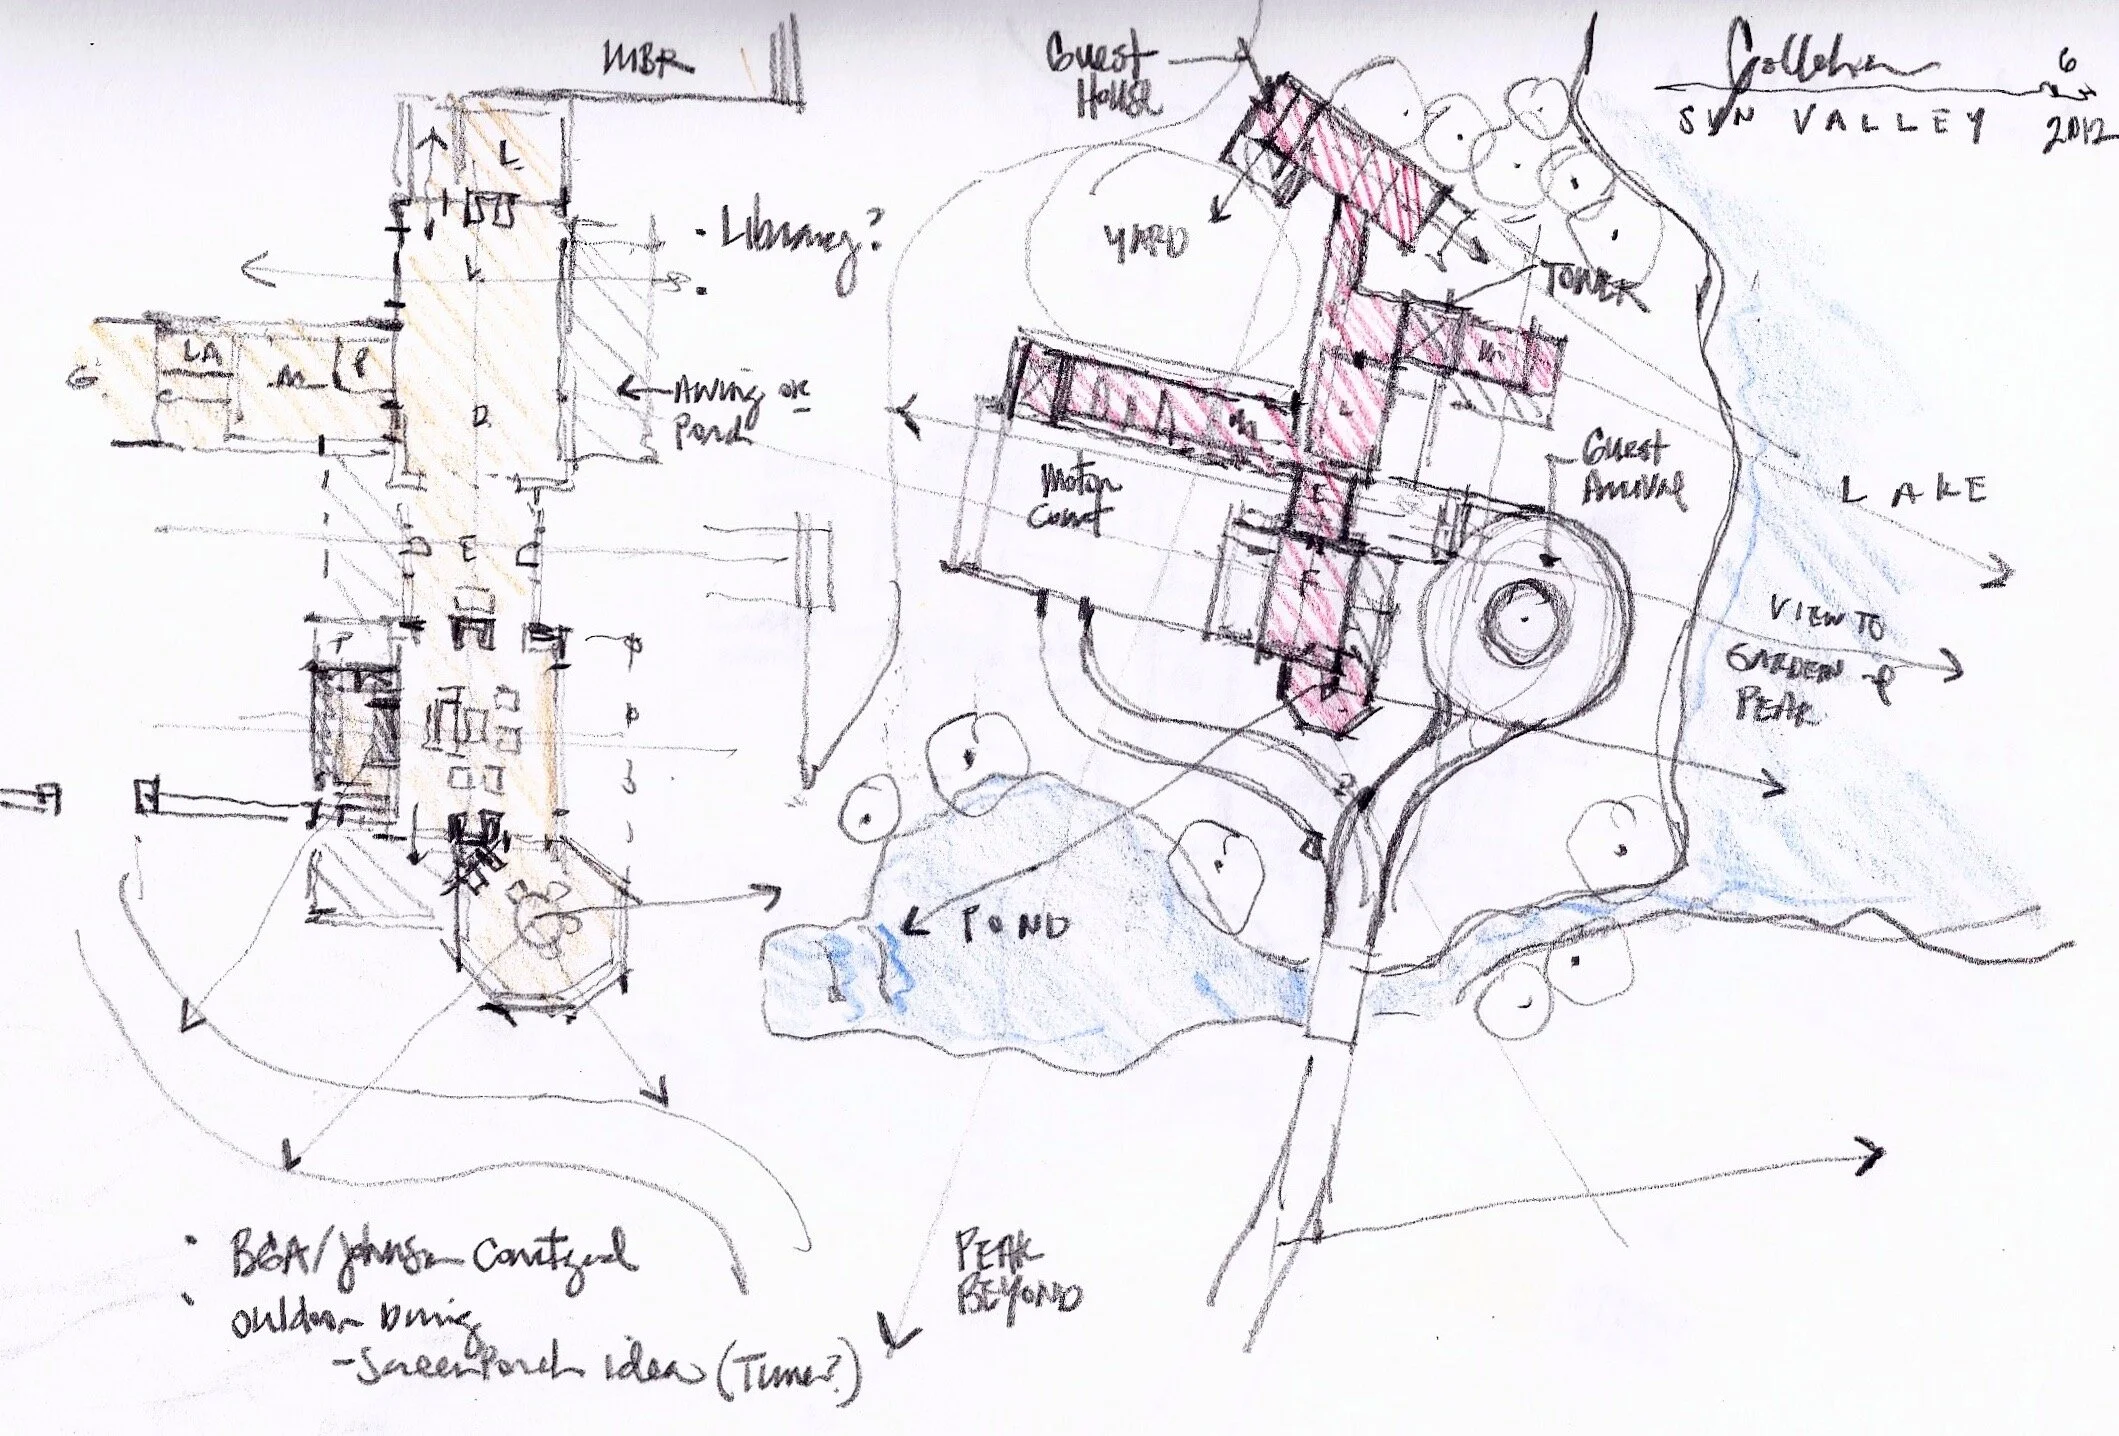 MBR
L
• Library?
•
K
LA
M
P
G
D
← Awing or
Porch
E
P
Guest
House
YARD
TOWER
M
L
Guest
Arrival
Motor
Court
E
F
LAKE
VIEW TO
GARDEN &
PEAK
POND
PEAK
BEYOND
SUN VALLEY
6
2012
• Outdoor Dining
- Screen Porch idea (Time?)